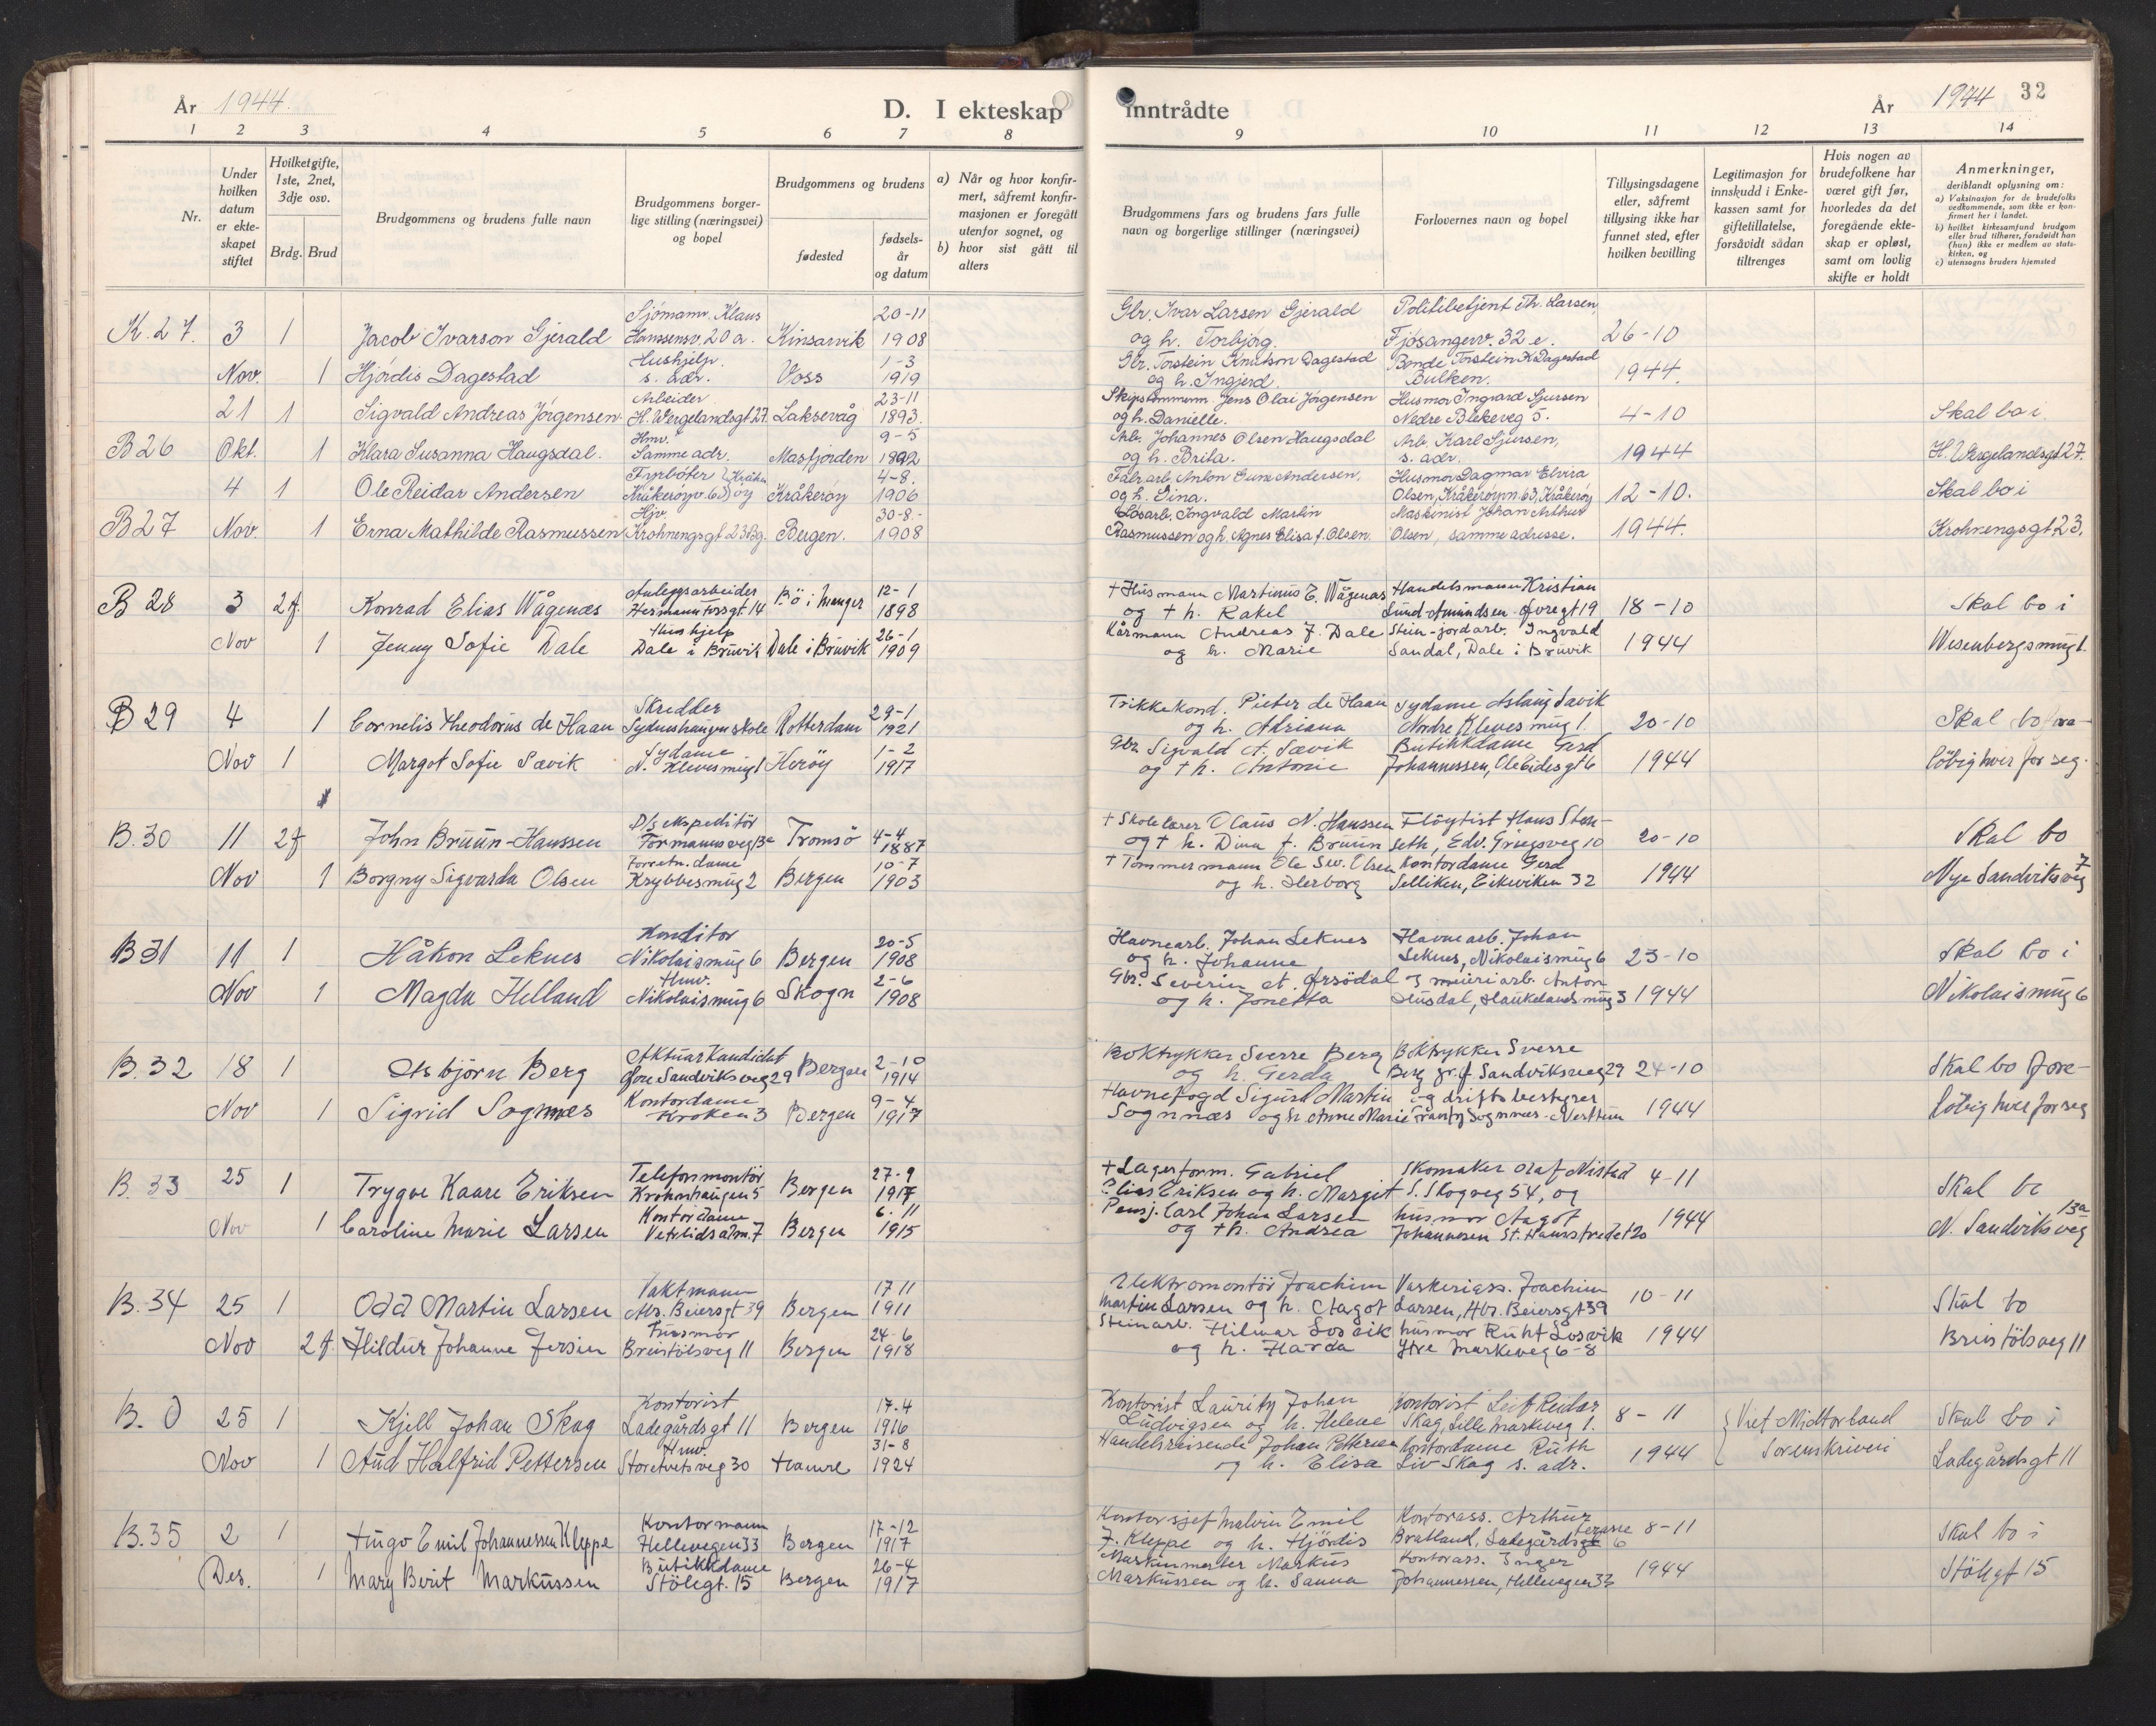 År 1944.
D. I ekteskap inntrådte
År 1944 32
1 2 3 4 5 6 7 8 9 10 11 12 13 14
Nr.
Under hvilken datum er ekteskapet stiftet
Hvilketgifte, 1ste, 2net, 3dje osv.
Brdg. Brud
Brudgommens og brudens fulle navn
Brudgommens borgerlige stilling (næringsvei) og bopel
Brudgommens og brudens
fødested
fødselsår og datum
a) Når og hvor konfirmert, såfremt konfirmasjonen er foregått utenfor sognet, og
b) hvor sist gått til alters
Brudgommens fars og brudens fars fulle navn og borgerlige stillinger (næringsvei)
Forlovernes navn og bopel
Tillysingsdagene eller, såfremt tillysing ikke har funnet sted, efter hvilken bevilling
Legitimasjon for innskudd i Enkekassen samt for giftetillatelse, forsåvidt sådan tiltrenges
Hvis nogen av brudefolkene har været gift før, hvorledes da det foregående ekteskap er opløst, samt om lovlig skifte er holdt
Anmerkninger,
deriblandt oplysning om:
a) Vaksinasjon for de brudefolks vedkommende, som ikke er konfirmert her i landet.
b) hvilket kirkesamfund brudgom eller brud tilhører, forsåvidt han (hun) ikke er medlem av statskirken, og
c) utensogns bruders hjemsted
K. 27. 3 1 Jacob Ivarson Gjerald Sjømann. Klaus Hanssensv. 20 a. Kinsarvik 20-11 1908 Gbr. Ivar Larsen Gjerald og h. Torbjørg. Politibetjent Th. Larsen, Fjøsangerv. 32 e. 26-10
Nov. 1 Hjørdis Dagestad Hushjelp. s. adr. Voss 1-3 1919 Gbr. Torstein Knutson Dagestad og h. Ingjerd. Bonde Torstein K Dagestad Bulken. 1944.
21 1 Sigvald Andreas Jørgensen. Arbeider H. Wergelandsgt 27. Laksevåg 23-11 1893. Jens Olai Jørgensen og h. Danielle. Husmor Ingvard Sjursen Nedre Blekeveg 5. 4-10 Skal bo i
B 26 Okt. 1 Klara Susanna Haugsdal. Hmv. Samme adr. Masfjorden 9-5 1892 Arb. Johannes Olsen Haugsdal og h. Brita. Arb. Karl Sjursen, s. adr. 1944 H. Wergelandsgt 27.
4 1 Ole Reidar Andersen Fyrbøter Kråkerøyv. 63 Kråkerøy Kråkerøy 4-8. 1906 Fabr. arb. Anton Andersen, og h. Lina. Husmor Dagmar Elvira Olsen, Kråkerøyvn. 63, Kråkerøy 12-10. Skal bo i
B 27 Nov. 1 Erna Mathilde Rasmussen Hjv. Krohnengsgt 23 Bg. Bergen. 30-8- 1908 Løsarb. Ingvald Martin Rasmussen og h. Agnes Elisa f. Olsen. Maskinist Johan Arthur Olsen, samme adresse. 1944. Krohnengsgt. 23.
B 28 3 2 f. Konrad Elias Wågenæs Anleggsarbeider Hermann Fossgt 14 Bö i Manger 12-1 1898 + Husmann Martinus E. Wågenæs og + h. Rakel Handelsmann Kristian Lund-Amundsen Øvregt 19 18-10 Skal bo i
Nov 1 Jenny Sofie Dale Hushjelp Dale i Bruvik Dale i Bruvik 26-1 1909 Kårmann Andreas J. Dale og h. Marie Stein-jordarb. Ingvald Sandal, Dale i Bruvik 1944 Wesenbergsmug 1.
B 29 4 1 Cornelis Theodorus de Haan Skredder Sydneshaugen skole Rotterdam 29-1 1921 Trikkekond. Pieter de Haan og h. Adriana Sydame Aslaug Savik Nordre Klevesmug 1. 20-10 Skal bo
Nov 1 Margot Sofie Sævik Sydame N. Klevesmug 1 Herøy 1-2 1917 Gbr. Sigvald A. Sævik og + h. Antonie Butikkdame Gerd Johannessen, Ole Eidesgt 6 1944 löbig hver for seg.
B. 30 11 2 f John Bruun-Hanssen D/s ekspeditör Formannsveg 13 a Tromsö 4-4 1887 + Skolelærer Olaus N. Hanssen og + h. Dina f. Bruun Flöytist Hans Stenseth, Edv. Griegsveg 10 20-10 Skal bo
Nov 1 Borgny Sigvarda Olsen Forretn. dame Krybbesmug 2 Bergen 10-7 1903 + Tømmermann Ole Sev. Olsen og h. Herborg Kontordame Gerd Selliken, Eikeviken 32 1944 Nye Sandviksveg 7
B 31 11 1 Håkon Leknes Konditor Nikolaismug 6 Bergen 20-5 1908 Havnearb. Johan Leknes og h. Johanne Havnearb. Johan Leknes, Nikolaismug 6 23-10 Skal bo i
Nov 1 Magda Helland Hmv. Nikolaismug 6 Skogn 2-6 1908 Gbr. Severin A. og h. Jonetta meieriarb. Anton Husdal, Haukelandsmug 3 1944 Nikolaismug 6
B. 32 18 1 Asbjørn Berg Aktuarkandidat Øvre Sandviksveg 29 Bergen 2-10 1914 Boktrykker Sverre Berg og h. Gerda Boktrykker Sverre Berg Sandviksveg 29 24-10 Skal bo fore-
Nov 1 Sigrid Sognnæs Kontordame Kroken 3 Bergen 9-4 1917 Havnefogd Sigurd Martin Sognnæs og h. Anne Marie og driftsbestyrer Sognnæs-Nesttun 1944 löbig hver for seg
B. 33 25 1 Trygve Kaare Eriksen Telefonmontör Krohnhaugen 5 Bergen 27-9 1917 + Lagerform. Gabriel Elias Eriksen og h. Margit Skomaker Olaf Nistad S. Skogveg 54, og 4-11 Skal bo
Nov 1 Caroline Marie Larsen Kontordame Vetrlidsalm. 7 Bergen 6.11 1915 Pensj. Carl Johan Larsen og + h. Andrea husmor Aagot Johannesen St. Hansstredet 20 1944 N. Sandviksveg 13a
B. 34 25 1 Odd Martin Larsen Vaktmann Abs. Beiersgt 39 Bergen 17 11 1911 Elektromontör Joachim Martin Larsen og h. Aagot Vaskeriass. Joachim Larsen, Abs. Beiersgt 39 10-11 Skal bo
Nov 2 f. Hildur Johanne Jersin Husmor Breistölsveg 11 Bergen 24-6 1918 Steinarb. Hilmar Losvik og h. Harda husmor Ruht Losvik Ytre Markeveg 6-8 1944 Breistölsveg 11
B. 0 25 1 Kjell Johan Skag Kontorist Ladegårdsgt 11 Bergen 17.4 1916 Kontorist Lauritz Johan Ludvigsen og h. Helene Kontorist Leif Reidar Skag, Lille Markeveg 1. 8-11 Viet Midhordland Skal bo i
Nov 1 Aud Halfrid Pettersen Hmv. Storetveitsveg 30 Hamre 31-8 1924 Handelsreisende Johan Pettersen og h. Elisa Kontordame Ruth Liv Skag s. adr. 1944 Sorenskriveri Ladegårdsgt 11
B. 35 2 1 Hugo Emil Johannessen Kleppe Kontormann Hellevegen 33 Bergen 17-12 1917 Kontorsjef Malvin Emil J. Kleppe og h. Hjördis Kontorass. Arthur Bratland, Ladegårdsterasse 6 8-11 Skal bo i
Des. 1 Mary Berit Markussen Butikkdame Stölegt. 15 Bergen 26-4 1917 Maskinmester Markus Markussen og h. Sanna Kontorass. Inger Johannessen, Hellevegen 33 1944 Stölegt 15